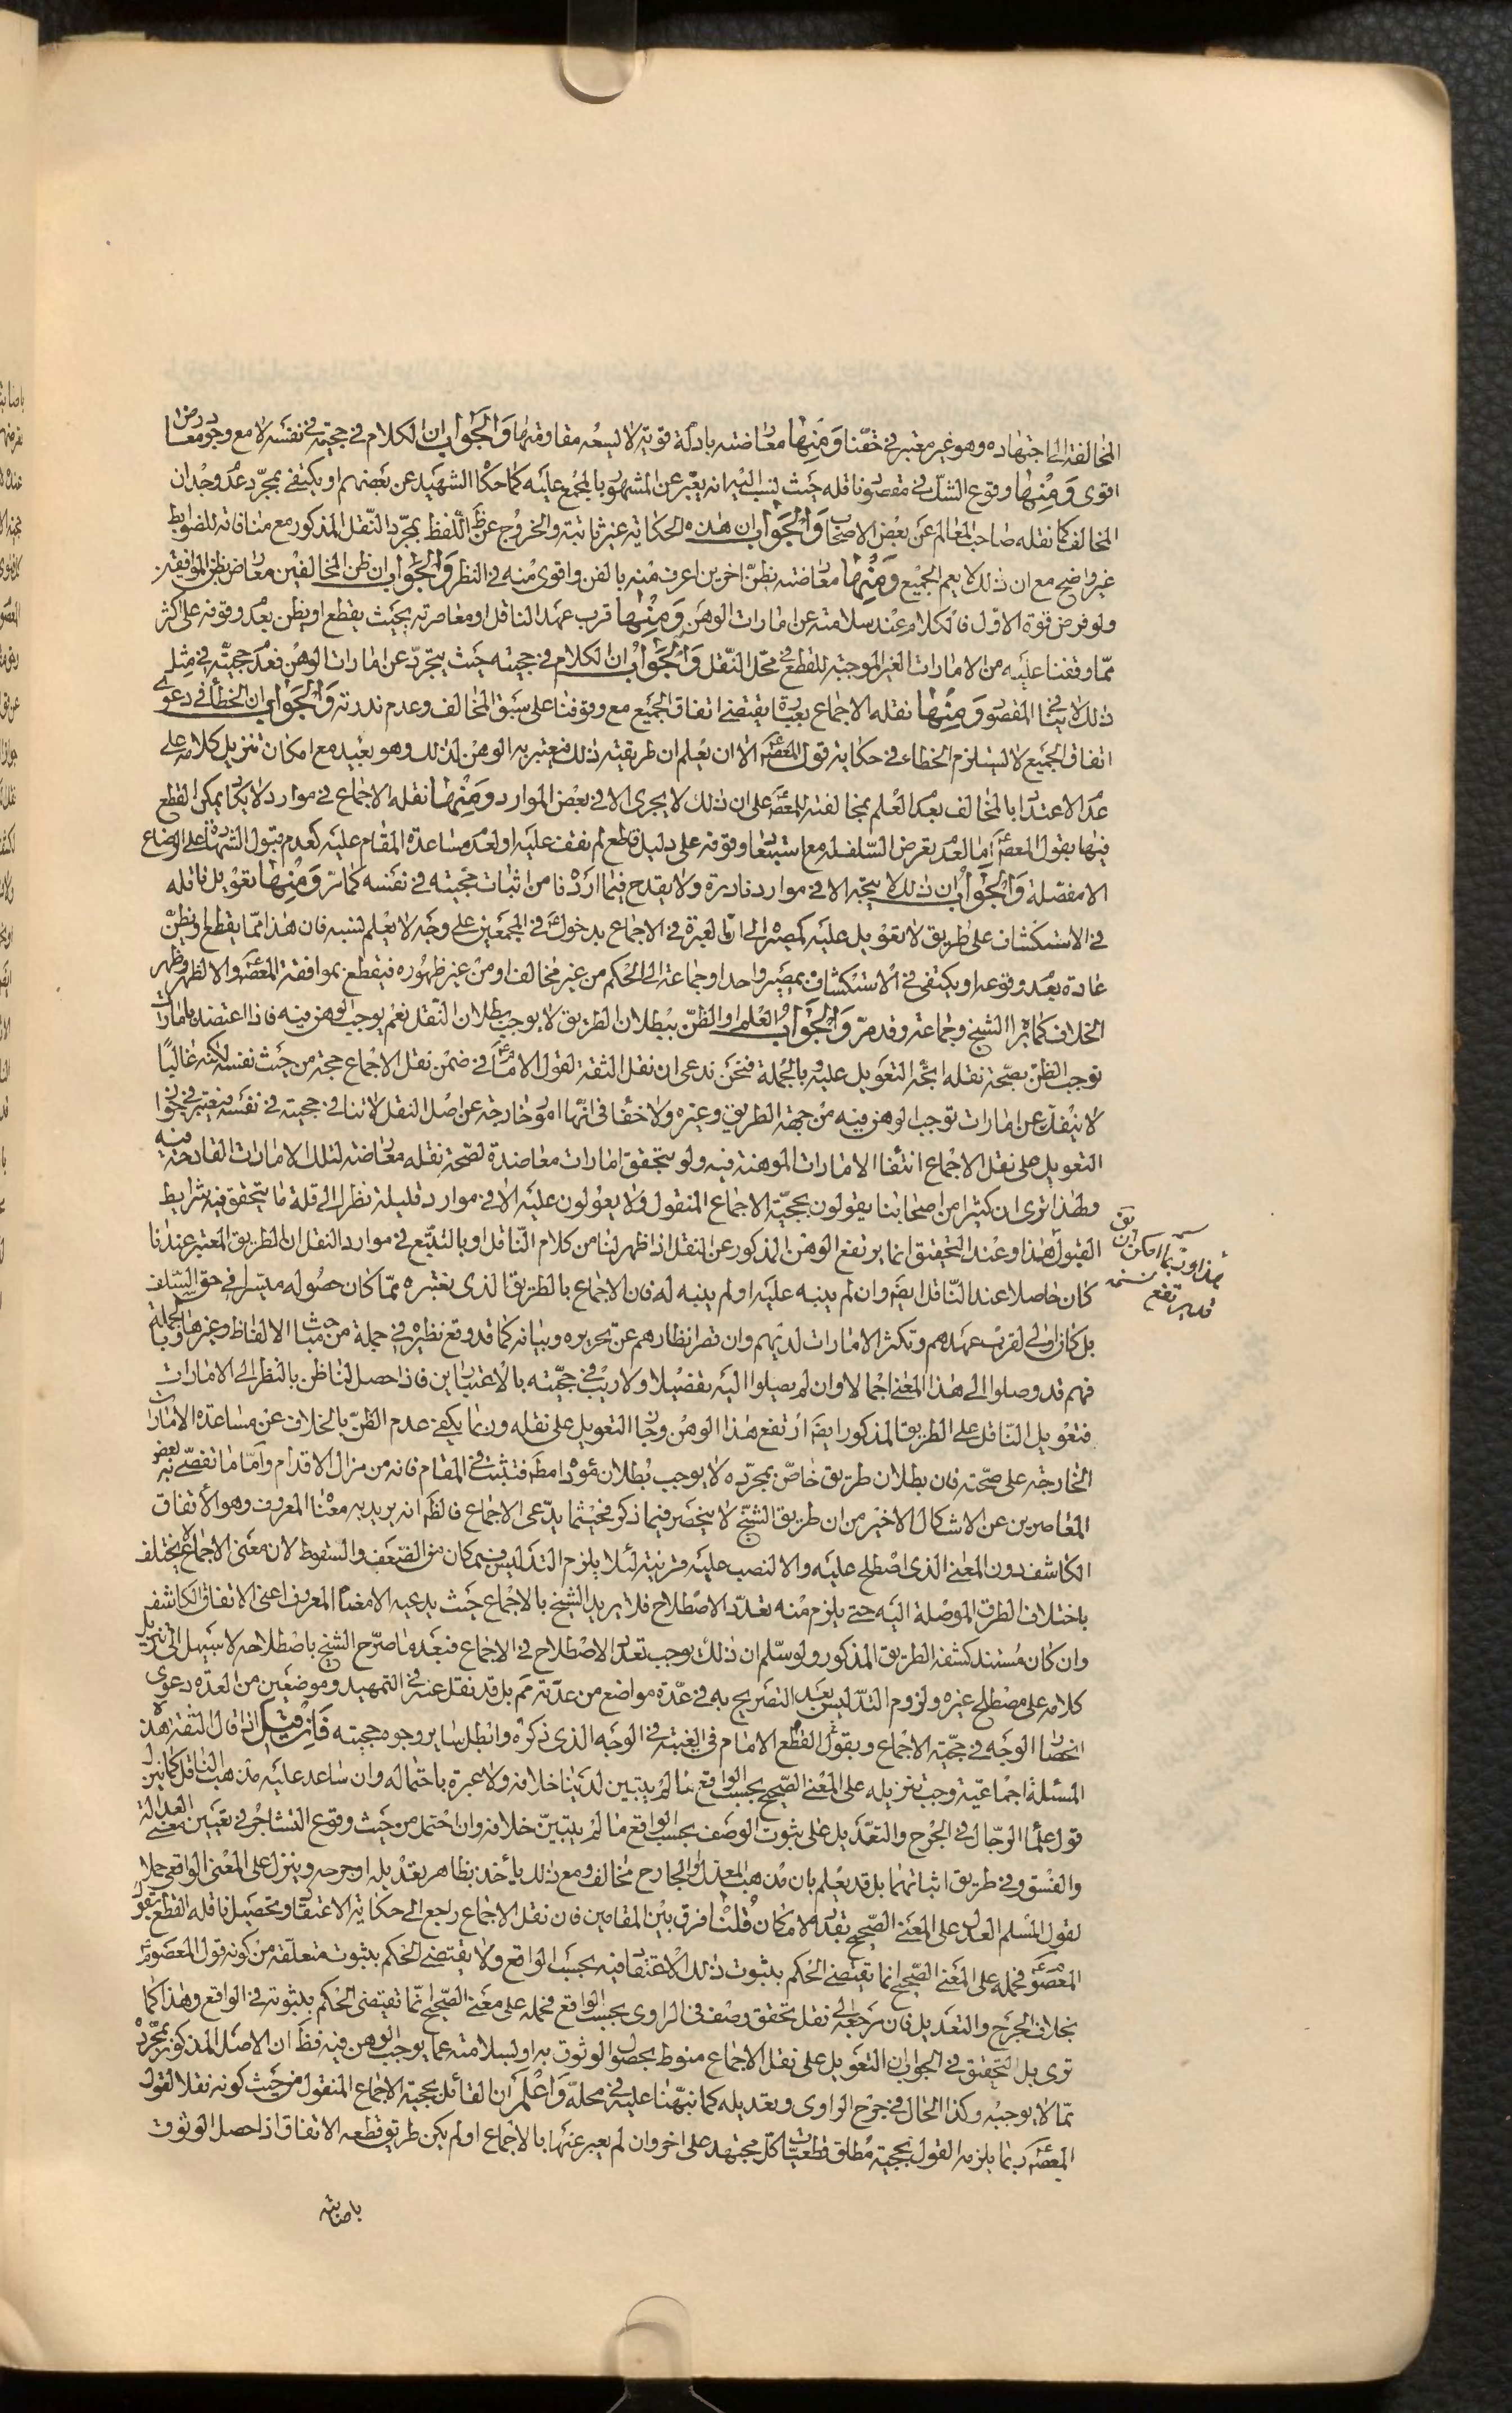 المخالفة الى اجتهاده وهو غير معتبر في حقنا ومنها معارضته بادلة قوية لا يسعه مقاومتها والجواب ان الكلام في حجيته في نفسه لا مع وجود معارض
اقوى ومنها وقوع الشك في مقصود ناقله حيث نسب اليهم انه يعبر عن المشهور بالمجمع عليه كما حكاه الشهيد عن بعضهم او يكتفى بمجرد عدم وجدان
المخالف كما نقله صاحب المعالم عن بعض الاصحاب والجواب ان هذه الحكاية غير ثابتة والخروج عن ظ اللفظ بمجرد النقل المذكور مع منافاته للضوابط
غير واضح مع ان ذلك لا يعم الجميع ومنها معارضته بظن اخرين اعرف منه بالفن واقوى منه في النظر والجواب ان ظن المخالفين معارض بظن الموافقين
ولو فرض قوة الاول فالكلام عند سلامته عن امارات الوهن ومنها قرب عهد الناقل او معاصرته بحيث يقطع او يظن بعدم وقوفه على اكثر
مما وقفنا عليه من الامارات الغير الموجبة للقطع في محل النقل والجواب ان الكلام في حجيته حيث يتجرد عن امارات الوهن فعدم حجيته في مثل
ذلك لا ينافي المقصود ومنها نقله الاجماع بعبارة يقتضى اتفاق الجميع مع وقوفنا على سبق المخالف وعدم ندرته والجواب ان الخطأ في دعوى
اتفاق الجميع لا يستلزم الخطاء في حكاية قول المعصوم الا ان يعلم ان طريقته ذلك فيعتبر به الوهن لذلك وهو بعيد مع امكان تنزيل كلامه على
عدم الاعتداد بالمخالف بعد العلم بمخالفته للمعصوم على ان ذلك لا يجرى الا في بعض الموارد ومنها نقله الاجماع في موارد لا يكاد يمكن القطع
فيها بقول المعصوم اما لعدم تعرض السلف له مع استبعاد وقوفه على دليل قاطع لم نقف عليه او لعدم مساعدة المقام عليه كعدم قبول الشهادة على الرضاع
الا مفصلة والجواب ان ذلك لا يتجه الا في موارد نادرة ولا يقدح فيما اردنا من اثبات حجيته في نفسه كما مر ومنها تعويل ناقله
في الاستكشاف على طريق لا تعويل عليه كمصيره الى ان لا عبرة في الاجماع بدخوله في المجمعين على وجه لا يعلم نسبه فان هذا مما يقطع او يظن
عادة بعدم وقوعه او يكتفى في الاستكشاف بمصير واحد او جماعة الى الحكم من غير مخالف او من غير ظهوره فيقطع بموافقة المعصوم والا لظهر وظهر
الخلاف كما يراه الشيخ وجماعة وقد مر والجواب ان العلم او الظن ببطلان الطريق لا يوجب بطلان النقل نعم يوجب الوهن فيه فاذا اعتضد بامارات
توجب الظن بصحة نقله اتجه التعويل عليه وبالجملة فنحن ندعى ان نقل الثقة لقول الامام في ضمن نقل الاجماع حجة من حيث نفسه لكنه غالبا
لا ينفك عن امارات توجب الوهن فيه من جهة الطريق وغيره ولا خفاء في انها امور خارجة عن اصل النقل لا تنافي حجيته في نفسه فيعتبر في جواز
التعويل على نقل الاجماع انتفاء الامارات الموهنة فيه ولو بتحقق امارات معاضدة لصحة نقله معارضة لتلك الامارات القادحة فيه
ولهذا ترى ان كثيرا من اصحابنا يقولون بحجية الاجماع المنقول ولا يعولون عليه الا في موارد قليلة نظرا الى قلة ما يتحقق فيه شرايط
القبول هذا وعند التحقيق انما يرتفع الوهن المذكور عن النقل اذا ظهر لنا من كلام الناقل او بالتتبع في موارد النقل ان الطريق المعتبر عندنا
كان حاصلا عند الناقل ايضا وان لم ينبه عليه او لم يتنبه له فان الاجماع بالطريق الذى نعتبره مما كان حصوله متيسرا في حق السلف
بل كان اولى لقرب عهدهم وتكثر الامارات لديهم وان قصر انظارهم عن تحريره وبيانه كما قد وقع نظيره في جملة من مباحث الالفاظ وغيرها وبالجملة
فهم قد وصلوا الى هذا المعنى اجمالا وان لم يصلوا اليه تفصيلا ولا ريب في حجيته بالاعتبارين فاذا حصل لنا ظن بالنظر الى الامارات
فتعويل الناقل على الطريق المذكور ايضا ارتفع هذا الوهن وجاز التعويل على نقله وربما يكفى عدم الظن بالخلاف عن مساعدة الامارات
الخارجة على صحته فان بطلان طريق خاص بمجرده لا يوجب بطلان مؤداه مط فتثبت في المقام فانه من مزال الاقدام واما ما تفصى به بعض
المعاصرين عن الاشكال الاخير من ان طريق الشيخ لا ينحصر فيما ذكر فحيثما يدعى الاجماع فالظ انه يريد به معناه المعروف وهو الاتفاق
الكاشف دون المعنى الذى اصطلح عليه والا لنصب عليه قرينة لئلا يلزم التدليس فبمكان من الضعف والسقوط لان معنى الاجماع لا يختلف
باختلاف الطرق الموصلة اليه حتى يلزم منه تعدد الاصطلاح فلا يريد الشيخ بالاجماع حيث يدعيه الا معناه المعروف اعنى الاتفاق الكاشف
وان كان مستند كشفه الطريق المذكور ولو سلم ان ذلك يوجب تعدد الاصطلاح في الاجماع فبعد ما صرح الشيخ باصطلاحه لا سبيل الى تنزيل
كلامه على مصطلح غيره ولزوم التدليس بعيد التصريح به في عدة مواضع من عدته مم بل قد نقل عنه في التمهيد وموضعين من العدة دعوى
انحصار الوجه في حجية الاجماع وبقول القطع الامام في الغيبة في الوجه الذى ذكره وابطل ساير وجوه حجيته فان قيل اذا قال الثقة هذه
المسئلة اجماعية وجب تنزيله على المعنى الصحيح بحسب الواقع ما لم يتبين لدينا خلافه ولا عبرة باحتماله وان ساعد عليه مذهب الناقل كما ينزل
قول علماء الرجال في الجرح والتعديل على ثبوت الوصف بحسب الواقع ما لم يتبين خلافه وان احتمل من حيث وقوع التشاجر في تعيين معنى العدالة
والفسق وفي طريق اثباتهما بل قد يعلم بان مذهب المعدل او الجارح مخالف ومع ذلك يأخذ بظاهر تعديله او جرحه وينزل على المعنى الواقعى حملا
لقول المسلم العدل على المعنى الصحيح بقدر الامكان قلنا فرق بين المقامين فان نقل الاجماع راجع الى حكاية الاعتقاد وتحصيل ناقله القطع بقول
المعصوم فحمله على المعنى الصحيح انما يقتضى الحكم بثبوت ذلك الاعتقاد فيه بحسب الواقع ولا يقتضى الحكم بثبوت متعلقه من كونه قول المعصوم
بخلاف الجرح والتعديل فان مرجعه الى نقل تحقق وصف في الراوى بحسب الواقع فحمله على معنى الصحيح انما يقتضى الحكم بثبوته في الواقع وهذا كما
ترى بل التحقيق في الجواب ان التعويل على نقل الاجماع منوط بحصول الوثوق به او لسلامته عما يوجب الوهن فيه فظ ان الاصل المذكور بمجرده
مما لا يوجبه وكذا الحال في جرح الراوى وتعديله كما نبهنا عليه في محله واعلم ان القائل بحجية الاجماع المنقول من حيث كونه نقلا لقول
المعصوم ربما يلزمه القول بحجية مطلق قطعيات كل مجتهد على اخر وان لم يعبر عنها بالاجماع او لم يكن طريق قطعه الاتفاق اذا حصل الوثوق
باصابته